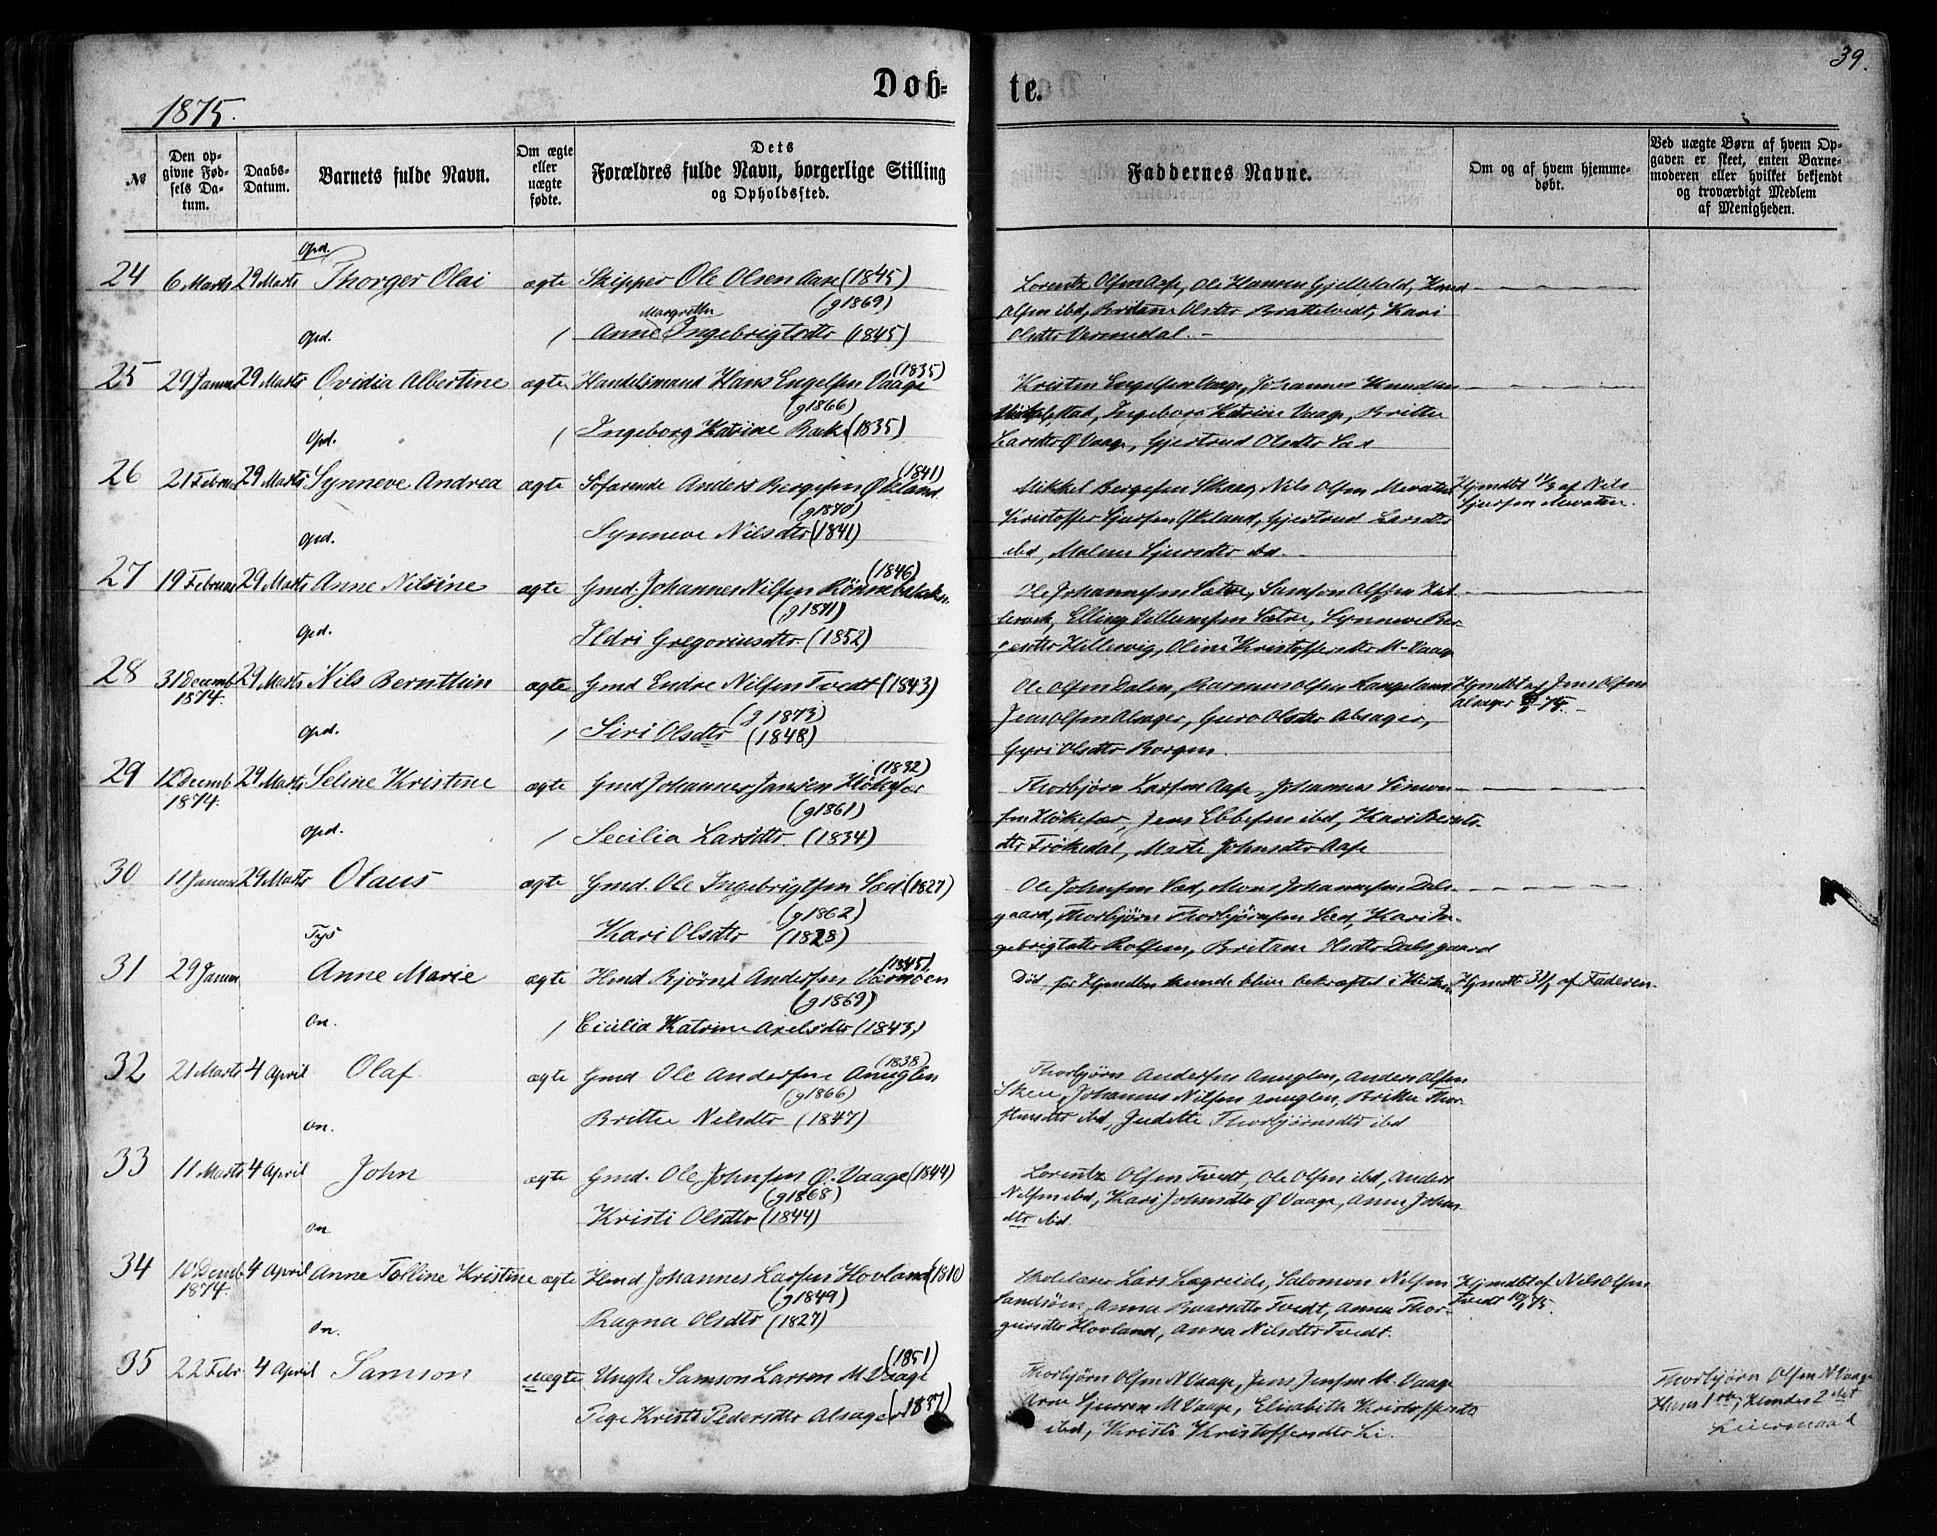 39.
Døb-
te.
1875.
№
Den op-
givne Fød-
sels Da-
tum.
Daabs-
Datum.
Barnets fulde Navn.
Om ægte
eller
uægte
fødte.
Dets
Forældres fulde Navn, borgerlige Stilling
og Opholdssted.
Faddernes Navne.
Om og af hvem hjemme-
døbt.
Ved uægte Børn af hvem Op-
gaven er skeet, enten Barne-
moderen eller hvilket bekjendt
og troværdigt Medlem
af Menigheden.
Opd.
24 6 Marts 29 Marts Thorger Olai ægte Skipper Ole Olsen Aase (1845)
(g 1869)
Margrethe
Anne Ingebrigtsdtr (1845)
Lorentz Olsen Aase, Ole Hansen Gjellefald, Knud
Olsen ibd, Olsdtr Brattetvedt, Kari
Olsdtr Vermedal. -
Opd.
25 29 Januar 29 Marts Ovidia Albertine ægte Handelsmand Hans Engelsen Vaage (1835)
(g1866)
Ingeborg Katrine Bak (1835)
Kristen Engelsen Vaage, Johannes Knudsen
Ingeborg Katrine Vaage, Britte
Larsdtr Ø Vaage, Gjertrud Olsdtr
Opd.
26 21 Februar 29 Marts Synneve Andrea ægte Søfarende Anders Bergesen Økland (1841)
(g1870)
Synneve Nilsdtr (1841)
Mikkel Bergesen Skaar, Nils Olsen
Kristoffer Sjursen Økland, Gjertrud Larsdtr
ibd, Malene Sjursdtr ibd -
Hjmdbt af Nils
Sjursen
Opd.
27 19 Februar 29 Marts Anne Nilsine ægte Gmd. Johannes Nilsen (1846)
(g 1871)
Ildri Gregoriusdtr (1852)
Ole Johannesen Sætre, Samson
Elling Villumsen Sætre, Synneve Ber-
gesdtr Hillesvig, Oline Kristoffersdtr M-Vaage
Opd.
28 31 Decemb 29 Marts Nils Bernthin ægte Gmd Endre Nilsen Tvedt (1843)
1874.
(g 1873)
Siri Olsdtr (1848)
Ole Olsen Dalen, Rasmus Olsen Langeland
Jens Olsen Alsager, Guro Olsdtr Alsager,
Gyri Olsdtr Borgen.
Hjmdbt af Jens Olsen
Alsager 75. -
Opd.
29 12 Decemb 29 Marts Seline Kristine ægte Gmd Johannes Jansen Høkefær (1832)
1874.
(g 1861)
Secilia Larsdtr. (1834)
Thorbjørn Larsen Aase, Johannes Simon-
sen Høkefær, Jens Ebbesen ibd, Kari Bernts-
dtr Frøkedal, Marte Johnsdtr Aase
Opd.
30 11 Januar 29 Marts Olaus ægte Gmd. Ole Ingebrigtsen Sæd (1827)
(g1862)
Kari Olsdtr (1828)
Ole Johnsen Sæd, Mons Johannesen Dals-
gaard, Thorbjørn Thorbjørnsen Sæd, Kari In-
gebrigtsdtr Rolfsnes, Dalsgaard
Tys
31 29 Januar Anne Marie ægte Hmd Bjørn Andersen (1845)
(g 1869)
Cicilia Katrine Axelsdtr (1843)
Død før Hjmdben kunde blive bekræftet i Kirken
Hjmdbt 31/1 af Faderen.
On.
32 21 Marts 4 April Olaf ægte Gmd Ole Andersen Anuglen (1838)
(g1866)
Britte Nilsdtr (1847)
Thorbjørn Andersen Anuglen, Anders Olsen
Johannes Nilsen Anuglen, Britha Thor-
stensdtr ibd, Judithe Thorbjørnsdtr ibd
On.
33 11 Marts 4 April John ægte Gmd. Ole Johnsen Ø. Vaage (1844)
(g1868)
Kristi Olsdtr (1844)
Lorentz Olsen Tvedt, Ole Olsen ibd, Anders
Nilsen ibd, Kari Johnsdtr Ø Vaage, Anna Johns-
dtr ibd
On
34 10 Decemb 4 April Anne Tolline Kristine ægte Hmd Johannes Larsen Hovland (1810)
1874.
(g1849)
Ragna Olsdtr (1827)
Skolelærer Lars Lægreide, Salomon Nilsen
Sandsøen, Anna Baarsdtr Tvedt, Anna Thor-
geirsdtr Hovland, Anna Nilsdtr Tvedt.
Hjmdbt af Nils Olsen
Tvedt 75.
On.
35 22 Febr 4 April Samson uægte Ungk Samson Larsen M Vaage (1851)
Pige Kristi Pedersdtr Alsager (1837)
Thorbjørn Olsen N Vaage, Jens Jensen M. Vaage
Arne Sjursen M Vaage, Elisabeth Kristoffersdtr
ibd, Kristi Kristoffersdtr Li.
Thorbjørn Olsen N Vaage
Hans 1ste, Hendes 2det
Leiermaal